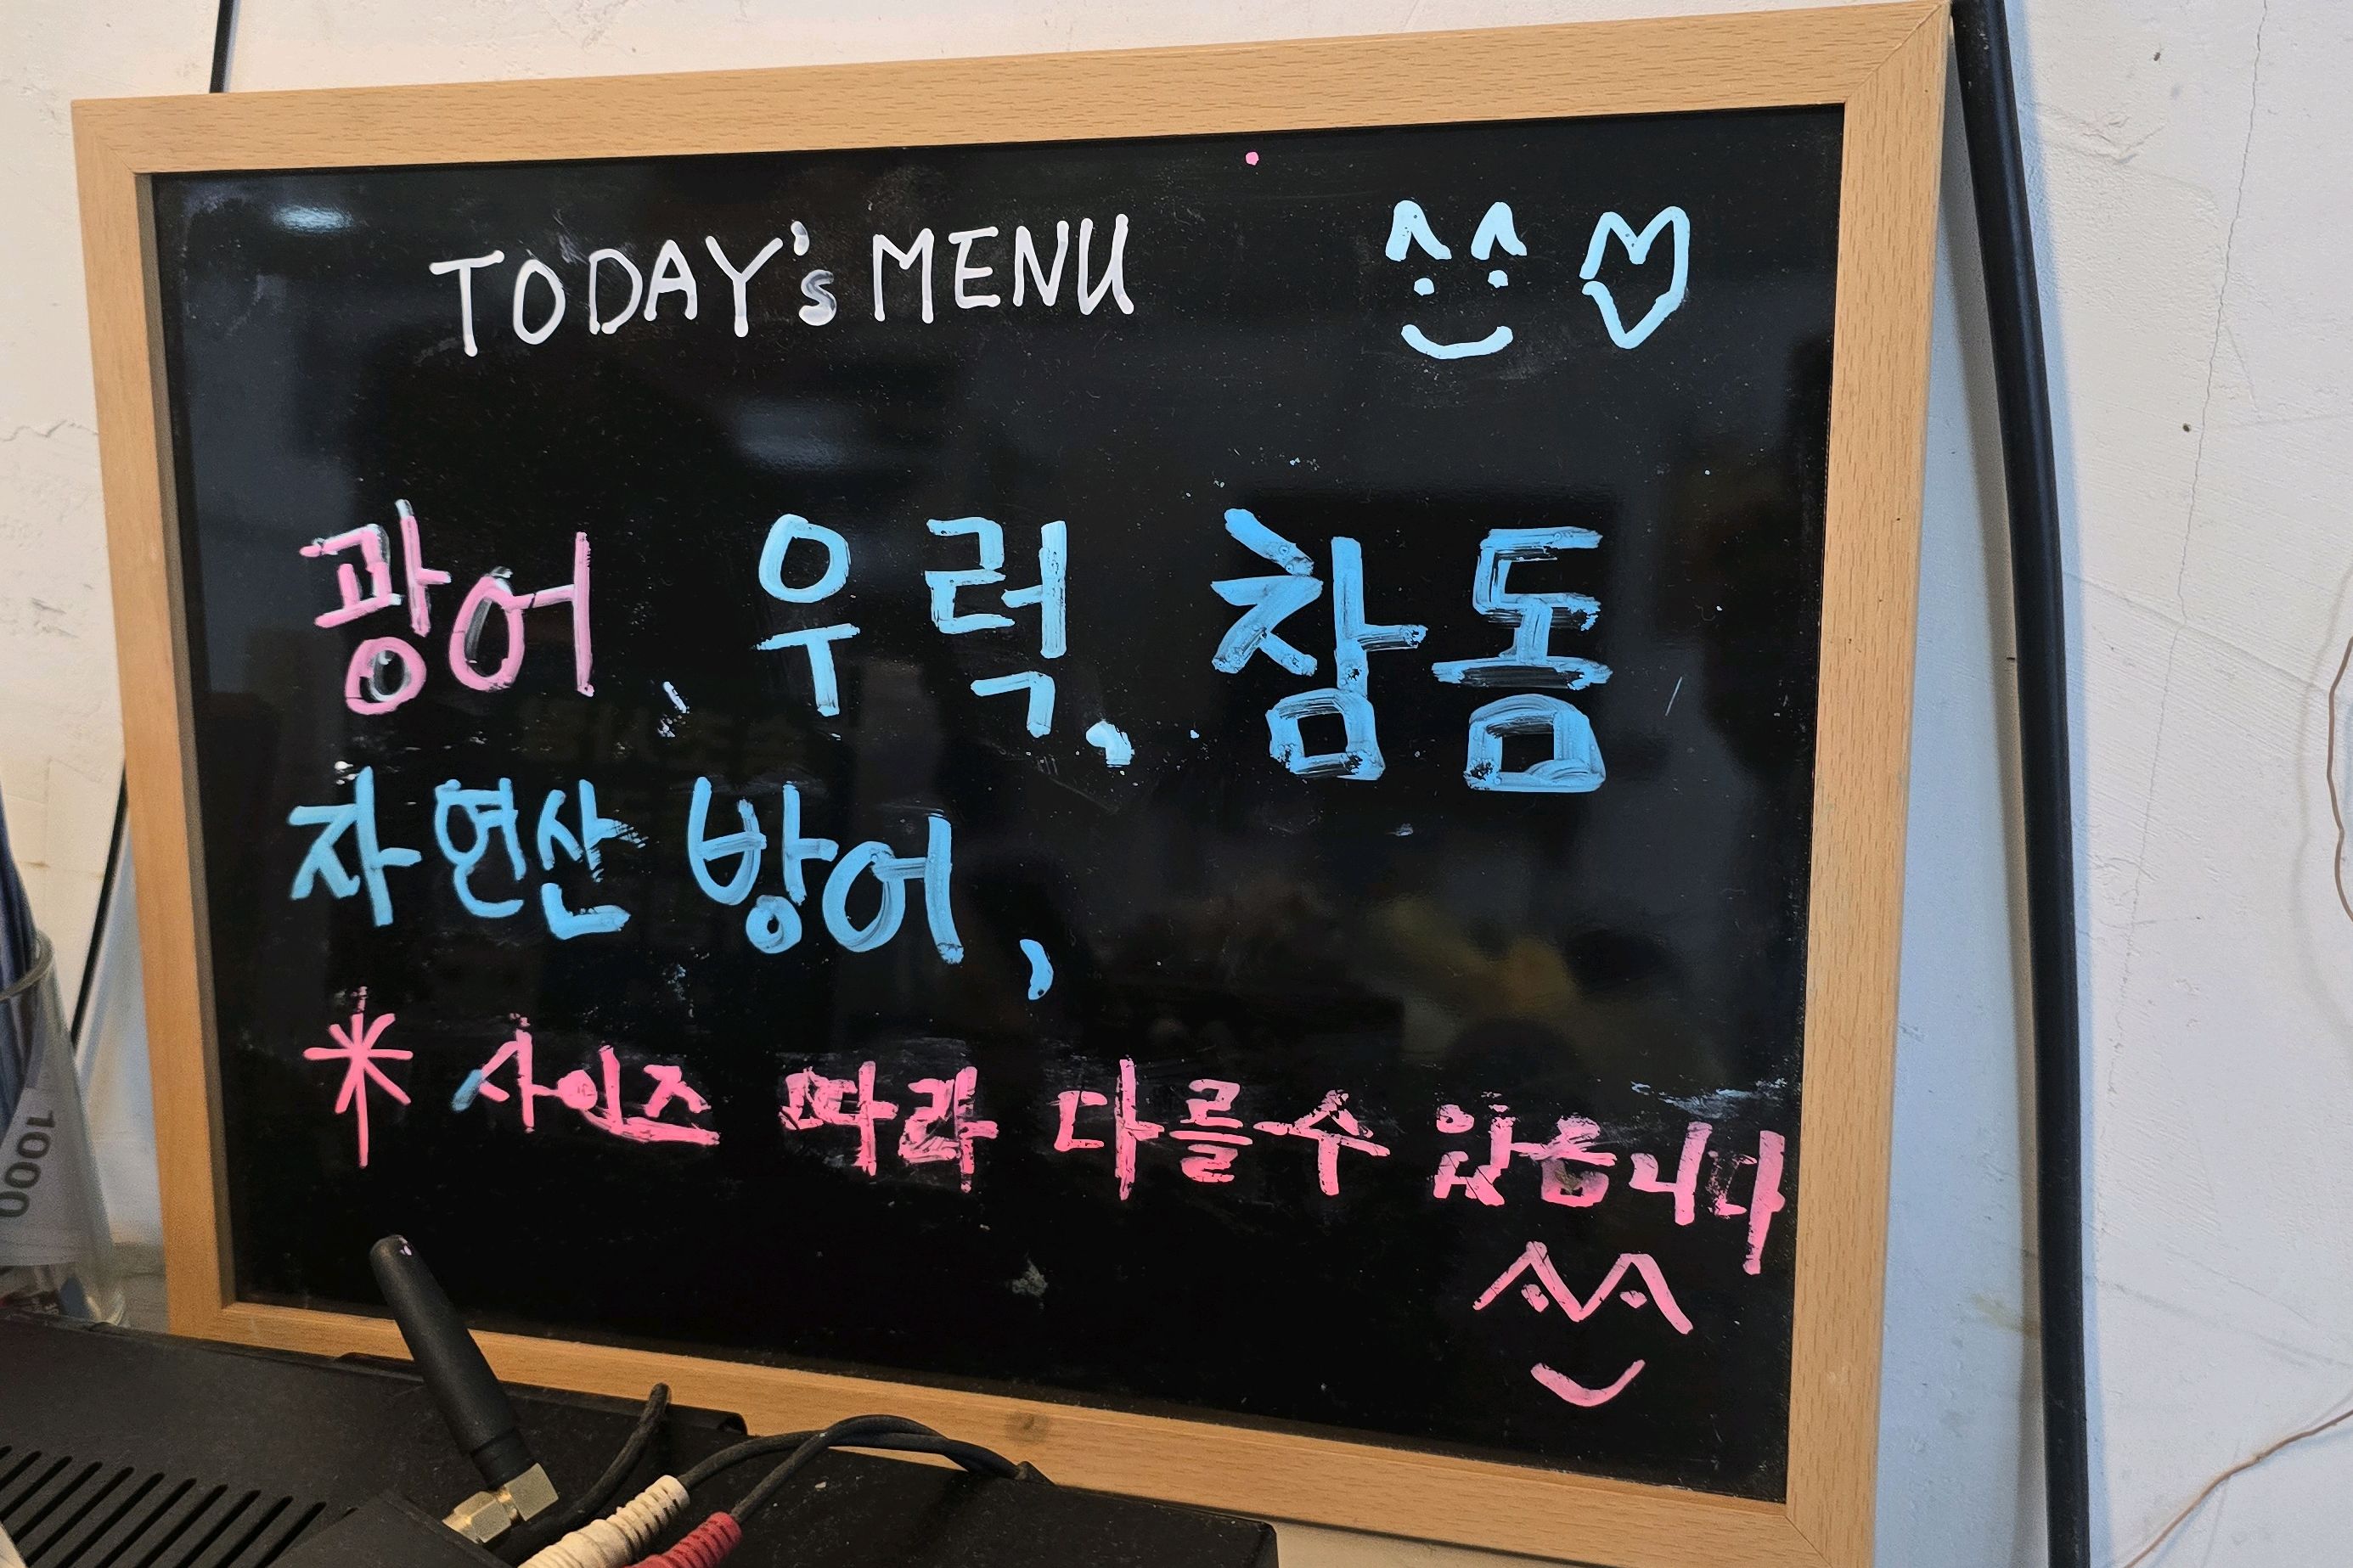 TODAY's MENU
광어, 우럭, 참돔
자연산 방어,
* 사이즈 따라 다를수 있습니다
1000